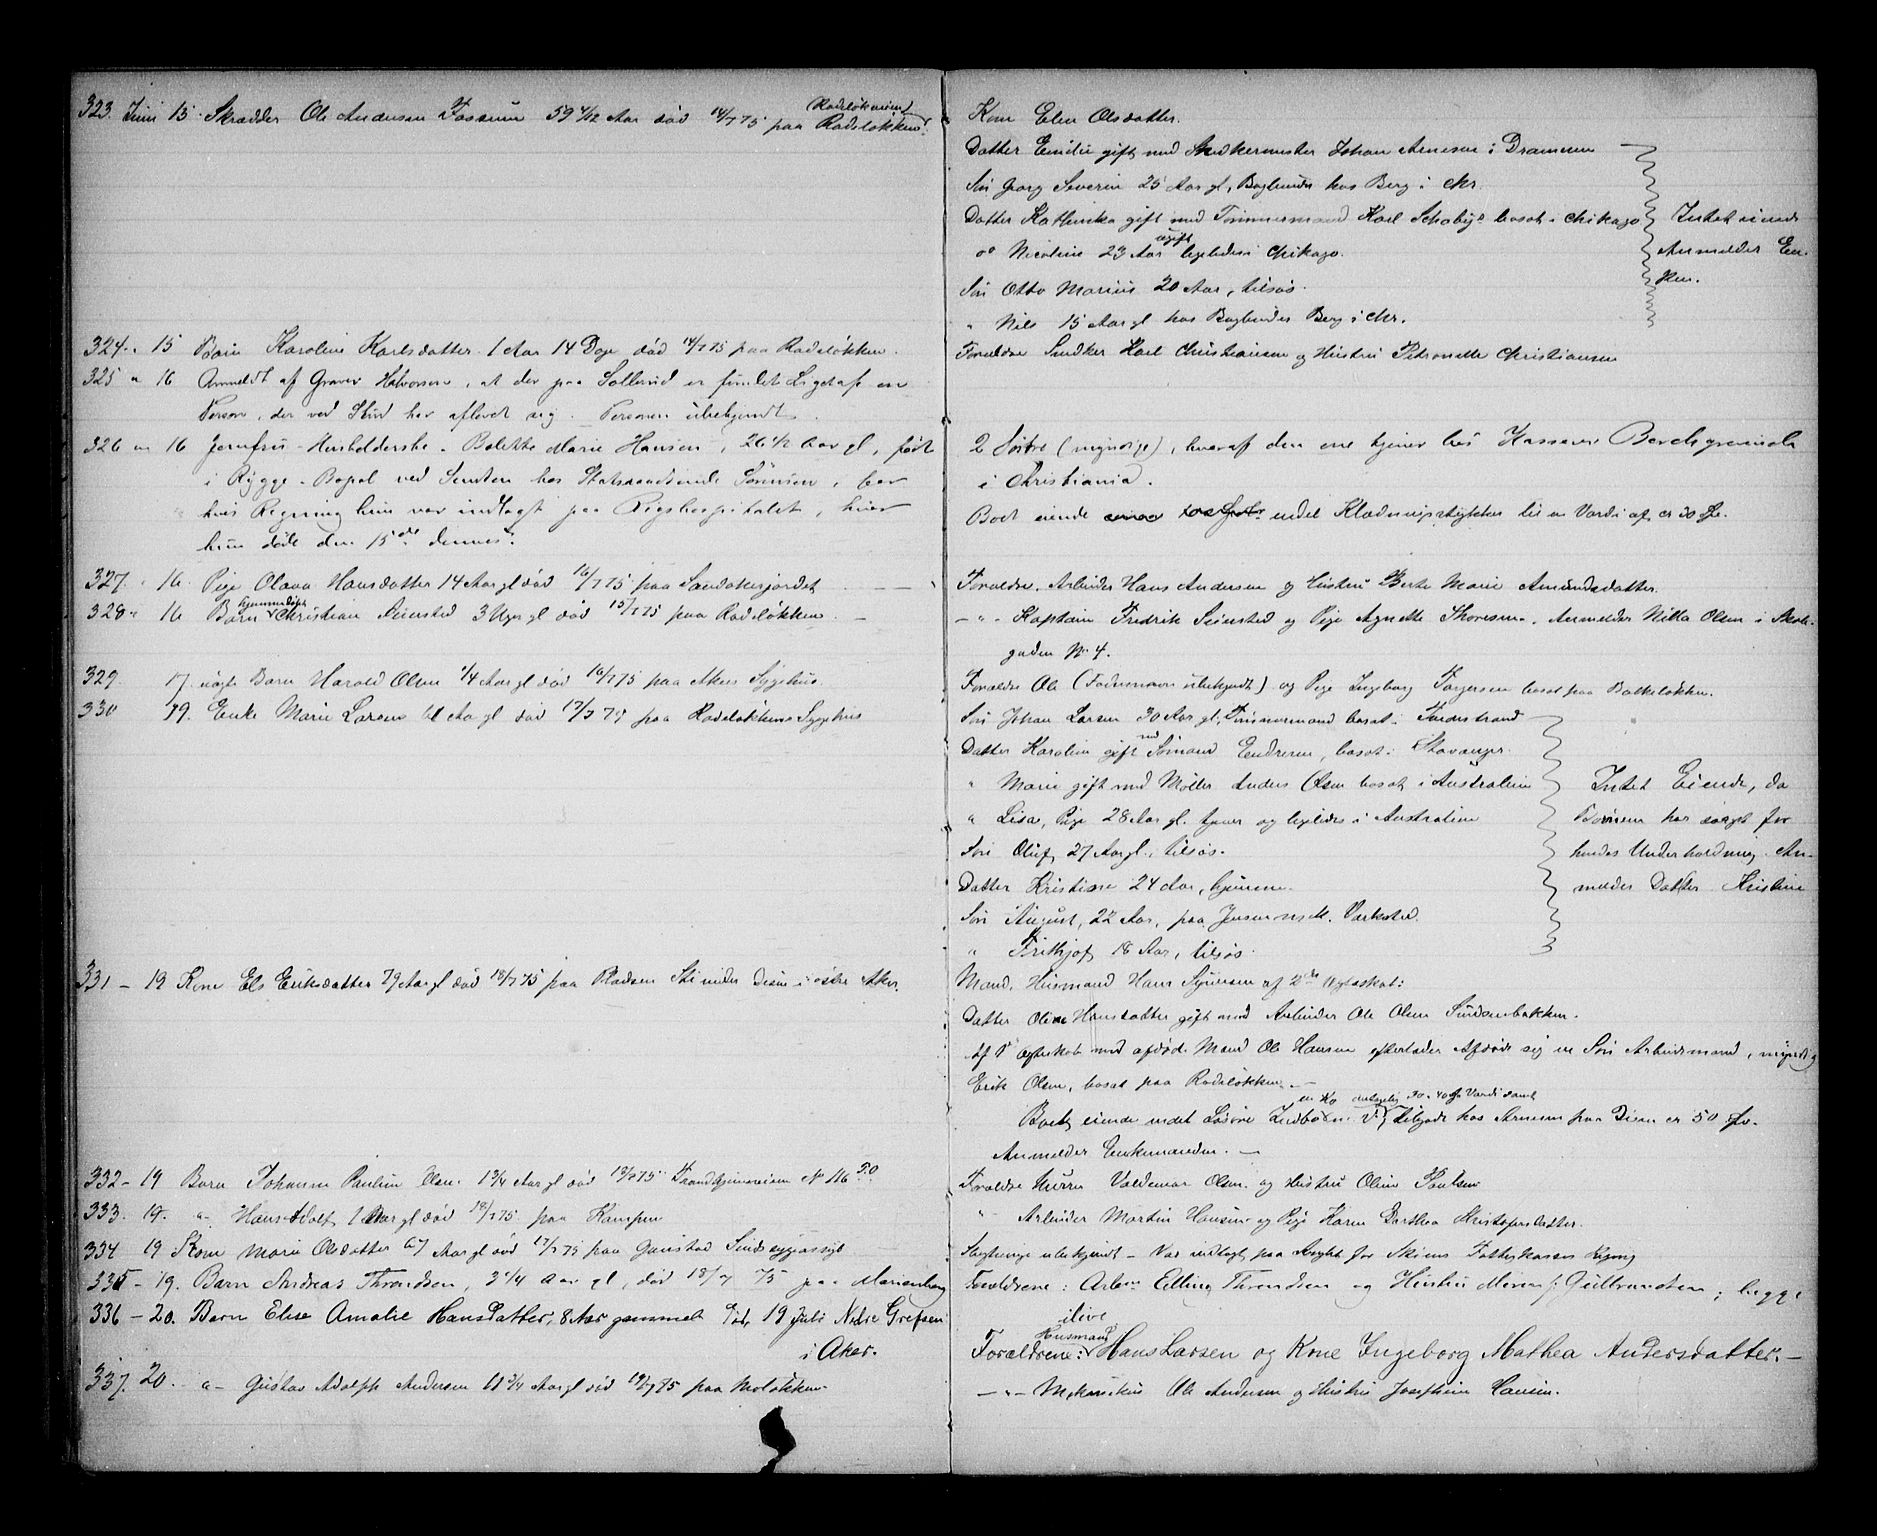 323. Juni 15. Skrædder Ole Andersen Fossum 59 4/12 Aar död 14/7 75 paa Rodeløkken.
Kone Elen Olsdatter.
Datter Emilie gift med Snedkermester Johan Arnesen i Drammen
Sön Georg Severin 25 Aar gl, Bogbinder hos Berg i Chr.
Datter Kathinka gift med Tömmermand Karl Schøby bosat i Chikago
do Nicoline 23 Aar ugift ligeledes i Chikago.
Sön Otto Marius 20 Aar, tilsös.
" Nils 15 Aar gl hos Bogbinder Berg i Chr.
Intet eiende
Anmelder En-
ken.
324. " 15 Barn Karoline Karlsdatter 1 Aar 14 Dage död 14/7 75 paa Rodeløkken.
Forældre Snedker Karl Christiansen og Hustru Petronelle Christiansen
325 " 16 Anmeldt af Graver Halvorsen, at der paa Sollerud er fundet Liget af en
Person, der ved Skud har aflivet sig. Personen ubekjendt.
326 " 16 Jomfru - Husholderske - Bolette Marie Hansen, 26 1/2 Aar gl, født
i Rygge - Bopæl ved Simsten hos Statsraadinde Sörensen, for
hvis Regning hun var indlagt paa Rigshospitalet, hvor
hun döde den 15de dennes.
2 Söstre (myndige), hvoraf den ene tjener hos Kasserer Borchgrevinck
i Christiania.
Boet eiende endel Klædningsstykker til en Værdi af cr 30 Spd.
327. " 16. Pige Olava Hansdatter 14 Aar gl död 16/7 75 paa Sandakerjordet
Forældre. Arbeider Hans Andersen og Hustru Berte Marie Amundsdatter.
328 " 16 Barn hjemmedöpt Christian Seiersted 3 Uger gl död 15/7 75 paa Rodeløkken.
— " - Kaptain Fredrik Seiersted og Pige Agnette Thoresen. Anmelder Nikka Olsen i Skole-
gaden No 4.
329. 17. uægte Barn Harald Olsen 1/4 Aar gl död 16/7 75 paa Akers Sygehus.
Forældre Ole (Fadersnavn ubekjendt) og Pige Ingeborg Torgersen bosat paa Balkeløkken.
330 19. Enke Marie Larsen 61 Aar gl död 17/7 75 paa Rodeløkkens Sygehus
Sön Johan Larsen 30 Aar gl. Tömmermand bosat i Tvedestrand
Datter Karoline gift med Sömand Endresen, bosat i Stavanger.
" Marie gift med Møller Anders Olsen bosat i Australien
" Lisa, Pige 28 Aar gl. tjener og ligeledes i Australien
Sön Oluf, 27 Aar gl., tilsös.
Datter Kristine 24 Aar, hjemme.
Sön August, 22 Aar, paa Jensens mek. Værksted.
" Frithjof 18 Aar, tilsös
Intet Eiende, da
Börnene har sörget for
hendes Underholdning. An-
melder Datter Kristine
331 - 19 Kone Els Eriksdatter 79 Aar gl död 18/7 75 paa Pladsen Ski under Disen i östre Aker.
Mand. Husmand Hans Syversen af 2det Ægteskab:
Datter Oline Hansdatter gift med Arbeider Ole Olsen Lindenbakken.
Af 1ste Ægteskab med afdöde Mand Ole Hansen efterlader Afdöde sig en Sön Arbeidsmand, myndig
Erik Olsen, bosat paa Rodeløkken. —
Boets eiende endel Lösöre Indbo en Ko antagelig 30 a 40 Spd Værdi samt tilgode hos Arnesen paa Disen cr 50 Spd.
Anmelder Enkemanden. —
332 - 19 Barn Johanne Pauline Olsen 1 3/4 Aar gl död 18/7 75 Trondhjemsveien No 116
Forældre Murer Valdemar Olsen og Hustru Oline Paulsen
333. 19. " Hans Adolf 1 Aar gl död 18/7 75 paa Kampen
" Arbeider Martin Hansen og Pige Karen Dorthea Kristofersdatter.
334 - 19 Kone Marie Olsdatter 67 Aar gl död 17/7 75 paa Gaustad Sindssygeasyl
Slægtninge ubekjendt - Var indlagt paa Asylet for Skiens Fattigkasses Regning
335 - 19. Barn Andreas Throndsen, 3 1/4 Aar gl, död 18/7 75 paa Marienborg
Forældrene: Arbm Elling Throndsen og Hustru Maren f. Gulbrandsen; begge
ilive
336 - 20. Barn Elise Amalie Hansdatter, 8 Aar gammel Död 19 Juli Nedre Grefsen
i Aker.
Forældrene: Husmand Hans Larsen og Kone Ingeborg Mathea Andersdatter. —
337. 20. " Gustav Adolph Andersen 11 3/4 Aar gl död 19/7 75 paa Moløkken
— " - Mekanikus Ole Andersen og Hustru Josephine Hansen.